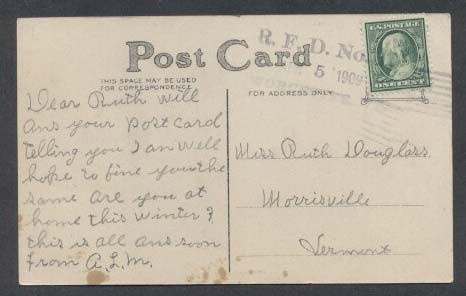 Post Card
THIS SPACE MAY BE USED
FOR CORRESPONDENCE
FOR ADDRESS ONLY
R. F. D. No.
5 1909
U.S. POSTAGE
ONE CENT
Dear Ruth Will
ans your postcard
telling you I am well
hope to fine you the
same are you at
home this winter?
this is all ans soon
From A.L.M.
Miss Ruth Douglass
Morrisville
Vermont